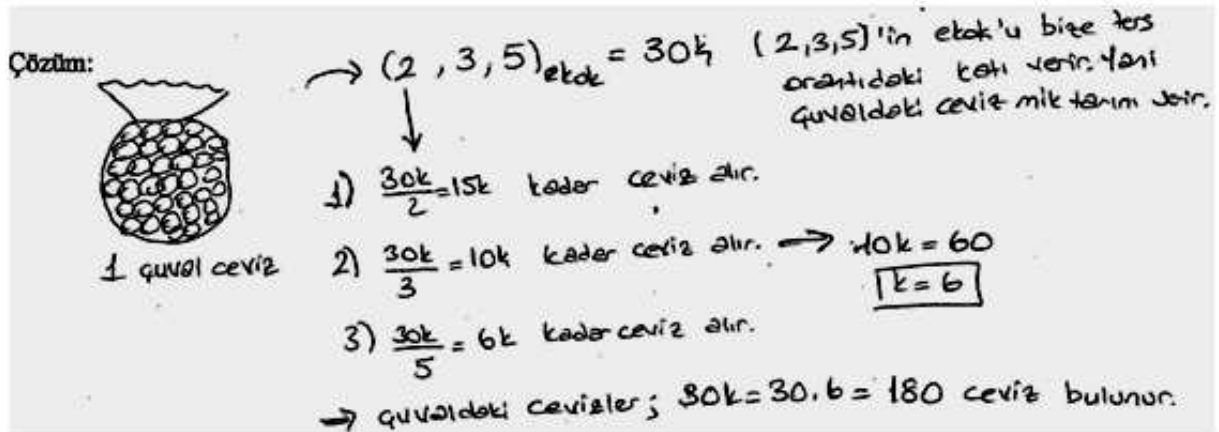 Çözüm:
→ (2, 3, 5)ekok = 30k (2,3,5)'in ekok'u bize ters
orantıdaki katı verir. Yani
çuvaldaki ceviz miktarını verir.
1) 30k/2 = 15k kadar ceviz alır.
1 çuval ceviz
2) 30k/3 = 10k kadar ceviz alır. → 10k = 60
k = 6
3) 30k/5 = 6k kadar ceviz alır.
→ çuvaldaki cevizler; 30k = 30.6 = 180 ceviz bulunur.